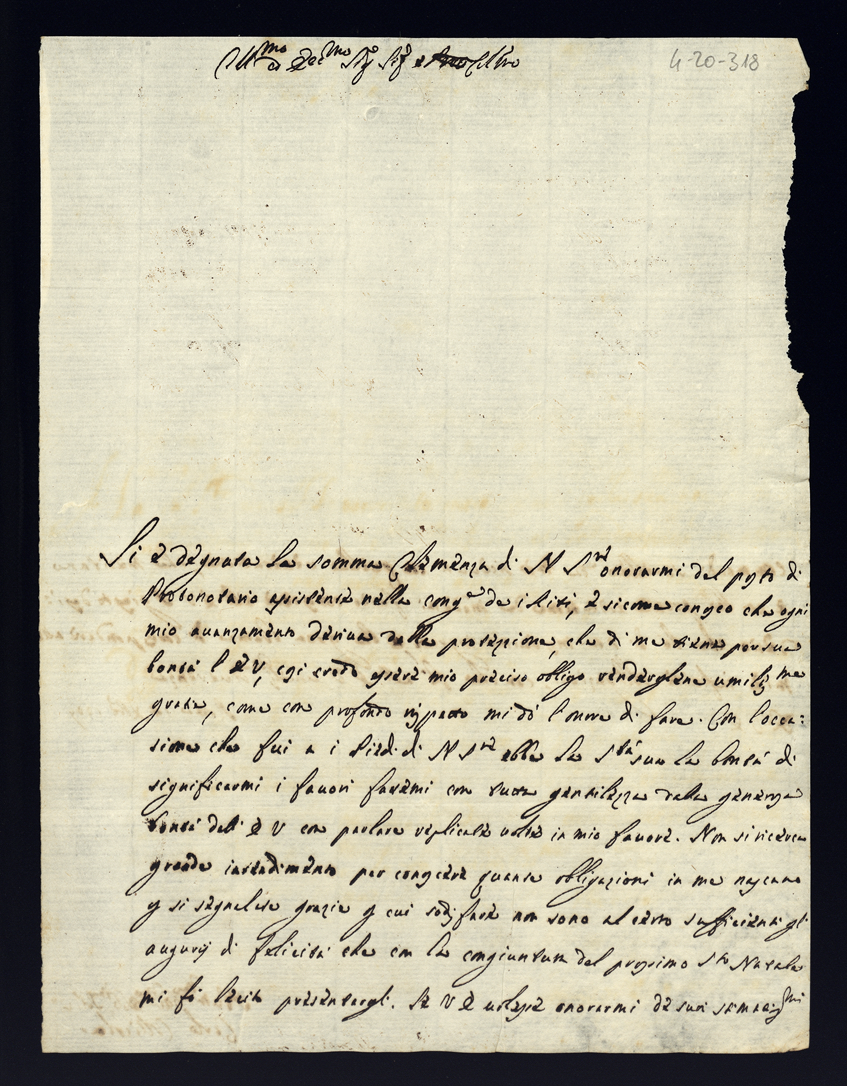 Ill.mo e Rev.mo Sig.r Sig.r Pro.ne Col.mo
4-20-318
Si è degnata la somma Clemenza di N S.re onorarmi del posto di
Protonotario assistente nella cong.e de i Riti, e sicome conosco che ogni
mio avanzamento deriva dalla protezzione, che di me tiene per sua
bontà l'E V, così credo essere mio preciso obligo rendergliene umiliss.me
grazie, come con profondo rispetto mi dò l'onore di fare. Con l'occa:
sione che fui a i Piedi di N S.re ebbe la S.tà sua la bontà di
significarmi i favori fatemi con tutta gentilezza dalla generosa
bontà dell' E V con parlare replicate volte in mio favore. Non si ricerca
grande intendimento per conoscere quante obligazioni in me nascano
p si segnalate grazie p cui sodisfare non sono al certo sufficienti gl'
augurij di felicità che con la congiuntura del prossimo S.to Natale
mi fò lecito presentargli. Se V E volesse onorarmi de suoi stimatiss.mi